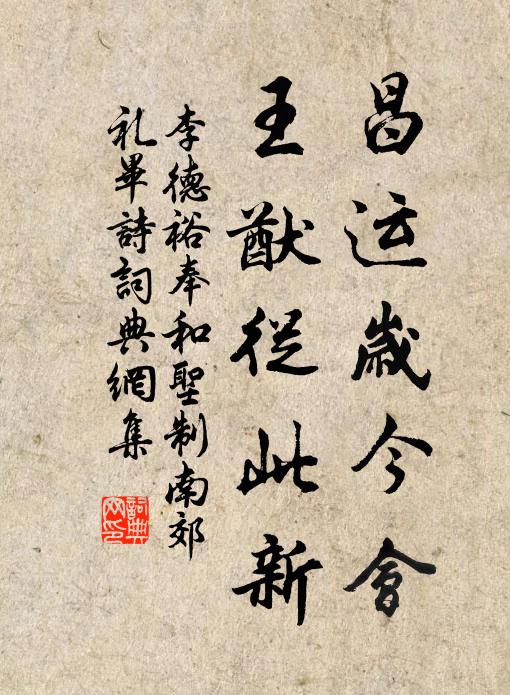 昌运歲今會
王猷從此新
李德裕奉和聖制南郊
礼畢詩詞典網集
詞典
网印